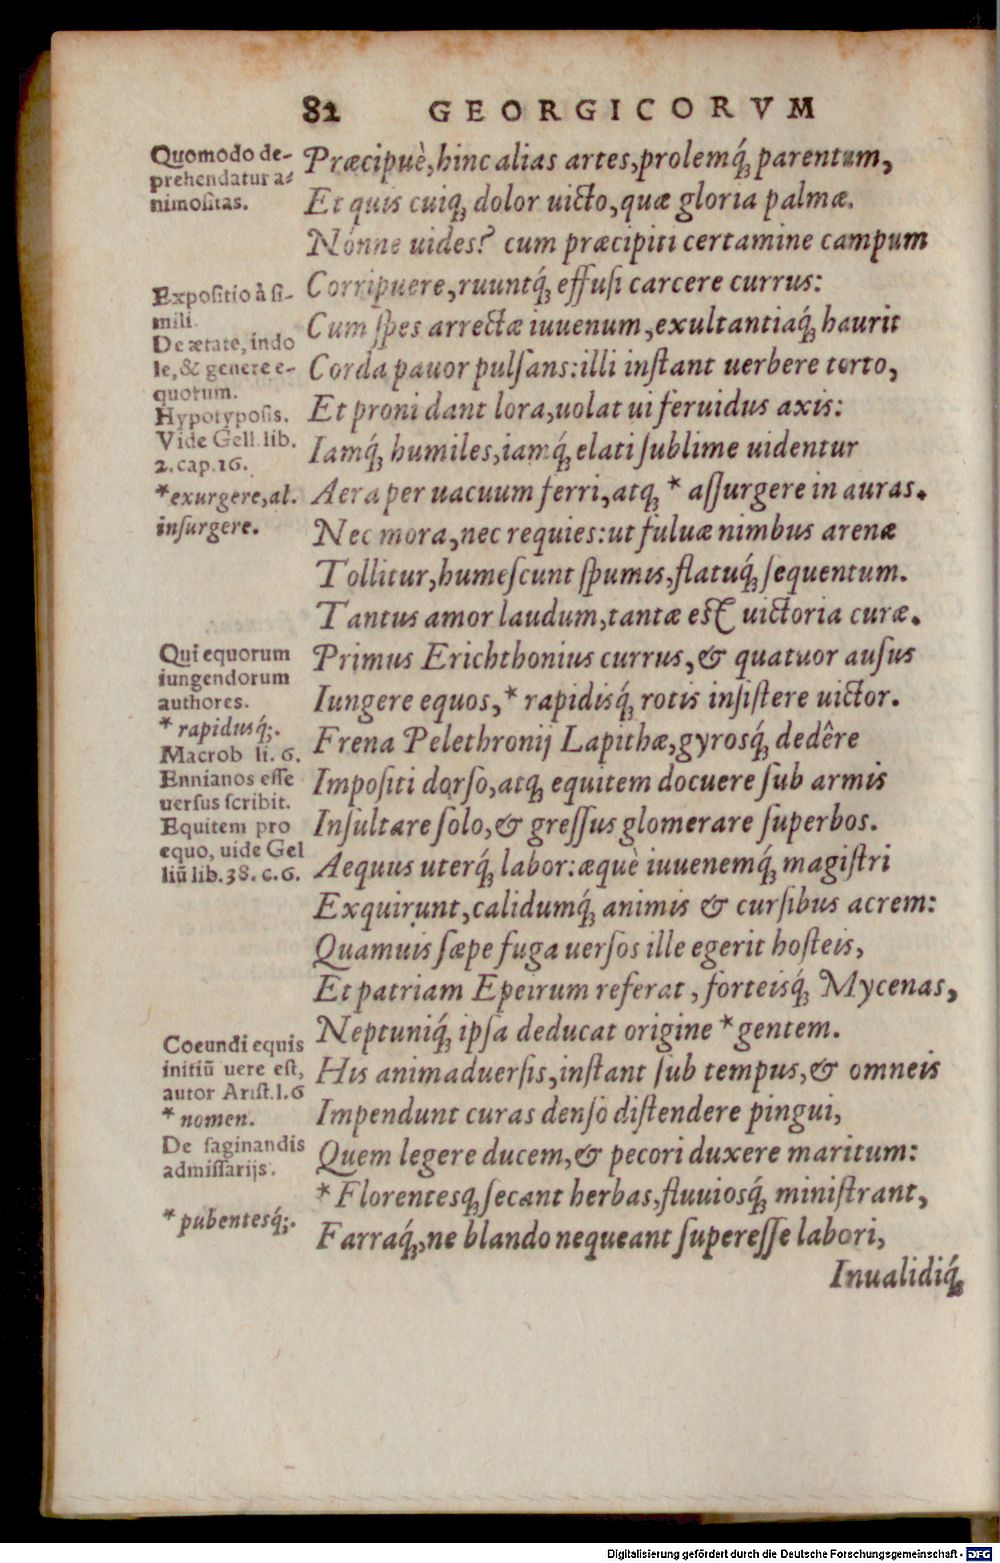 82 GEORGICORVM
Quomodo de-
prehendatur a-
nimositas.
Præcipuè, hinc alias artes, prolemq́; parentum,
Et quis cuiq; dolor uicto, quæ gloria palmæ.
Nónne uides? cum præcipiti certamine campum
Expositio à si-
mili.
De ætate, indo
le, & genere e-
quorum.
Hypotyposis.
Vide Gell. lib.
2. cap. 16.
*exurgere, al.
insurgere.
Corripuere, ruuntq́; effusi carcere currus:
Cum spes arrectæ iuuenum, exultantiaq́; haurit
Corda pauor pulsans: illi instant uerbere torto,
Et proni dant lora, uolat ui feruidus axis:
Iamq́; humiles, iamq́; elati sublime uidentur
Aera per uacuum ferri, atq; * assurgere in auras.
Nec mora, nec requies: ut fuluæ nimbus arenæ
Tollitur, humescunt spumis, flatuq́; sequentum.
Tantus amor laudum, tantæ est uictoria curæ.
Qui equorum
iungendorum
authores.
* rapidusq́;.
Macrob li. 6.
Ennianos esse
uersus scribit.
Equitem pro
equo, uide Gel
liū lib. 38. c. 6.
Primus Erichthonius currus, & quatuor ausus
Iungere equos, * rapidisq́; rotis insistere uictor.
Frena Pelethronij Lapithæ, gyrosq́; dedêre
Impositi dorso, atq; equitem docuere sub armis
Insultare solo, & gressus glomerare superbos.
Aequus uterq́; labor: æquè iuuenemq́; magistri
Exquirunt, calidumq́; animis & cursibus acrem:
Quamuis sæpe fuga uersos ille egerit hosteis,
Et patriam Epeirum referat, forteisq́; Mycenas,
Neptuniq́; ipsa deducat origine * gentem.
Coeundi equis
initiū uere est,
autor Arist. l. 6
* nomen.
De saginandis
admissarijs.
* pubentesq́;.
His animaduersis, instant sub tempus, & omneis
Impendunt curas denso distendere pingui,
Quem legere ducem, & pecori duxere maritum:
* Florentesq; secant herbas, fluuiosq́; ministrant,
Farraq́;, ne blando nequeant superesse labori,
Inualidiq́;
Digitalisierung gefördert durch die Deutsche Forschungsgemeinschaft - DFG